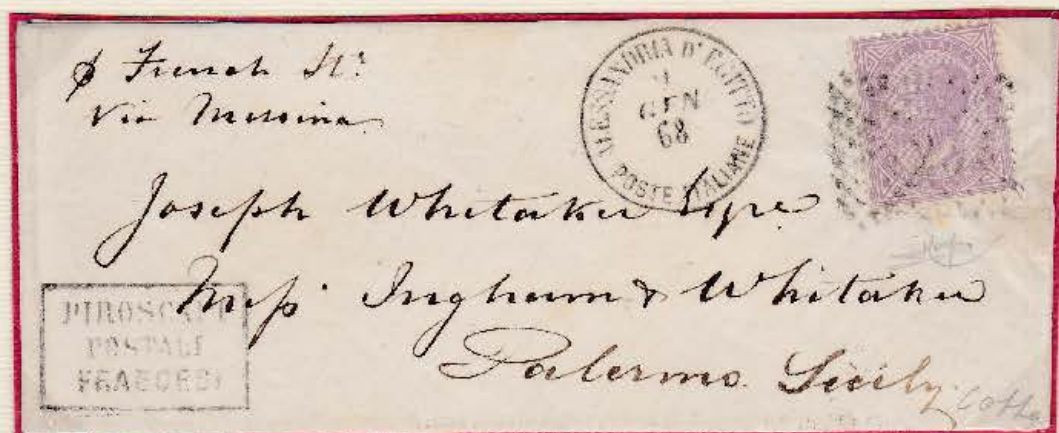 p French Str
Via Messina
ALESSANDRIA D'EGITTO
GEN
68
POSTE ITALIANE
Joseph Whitaker Esqre
Messrs Ingham & Whitaker
Palermo Sicily
PIROSCAFI
POSTALI
FRANCESI